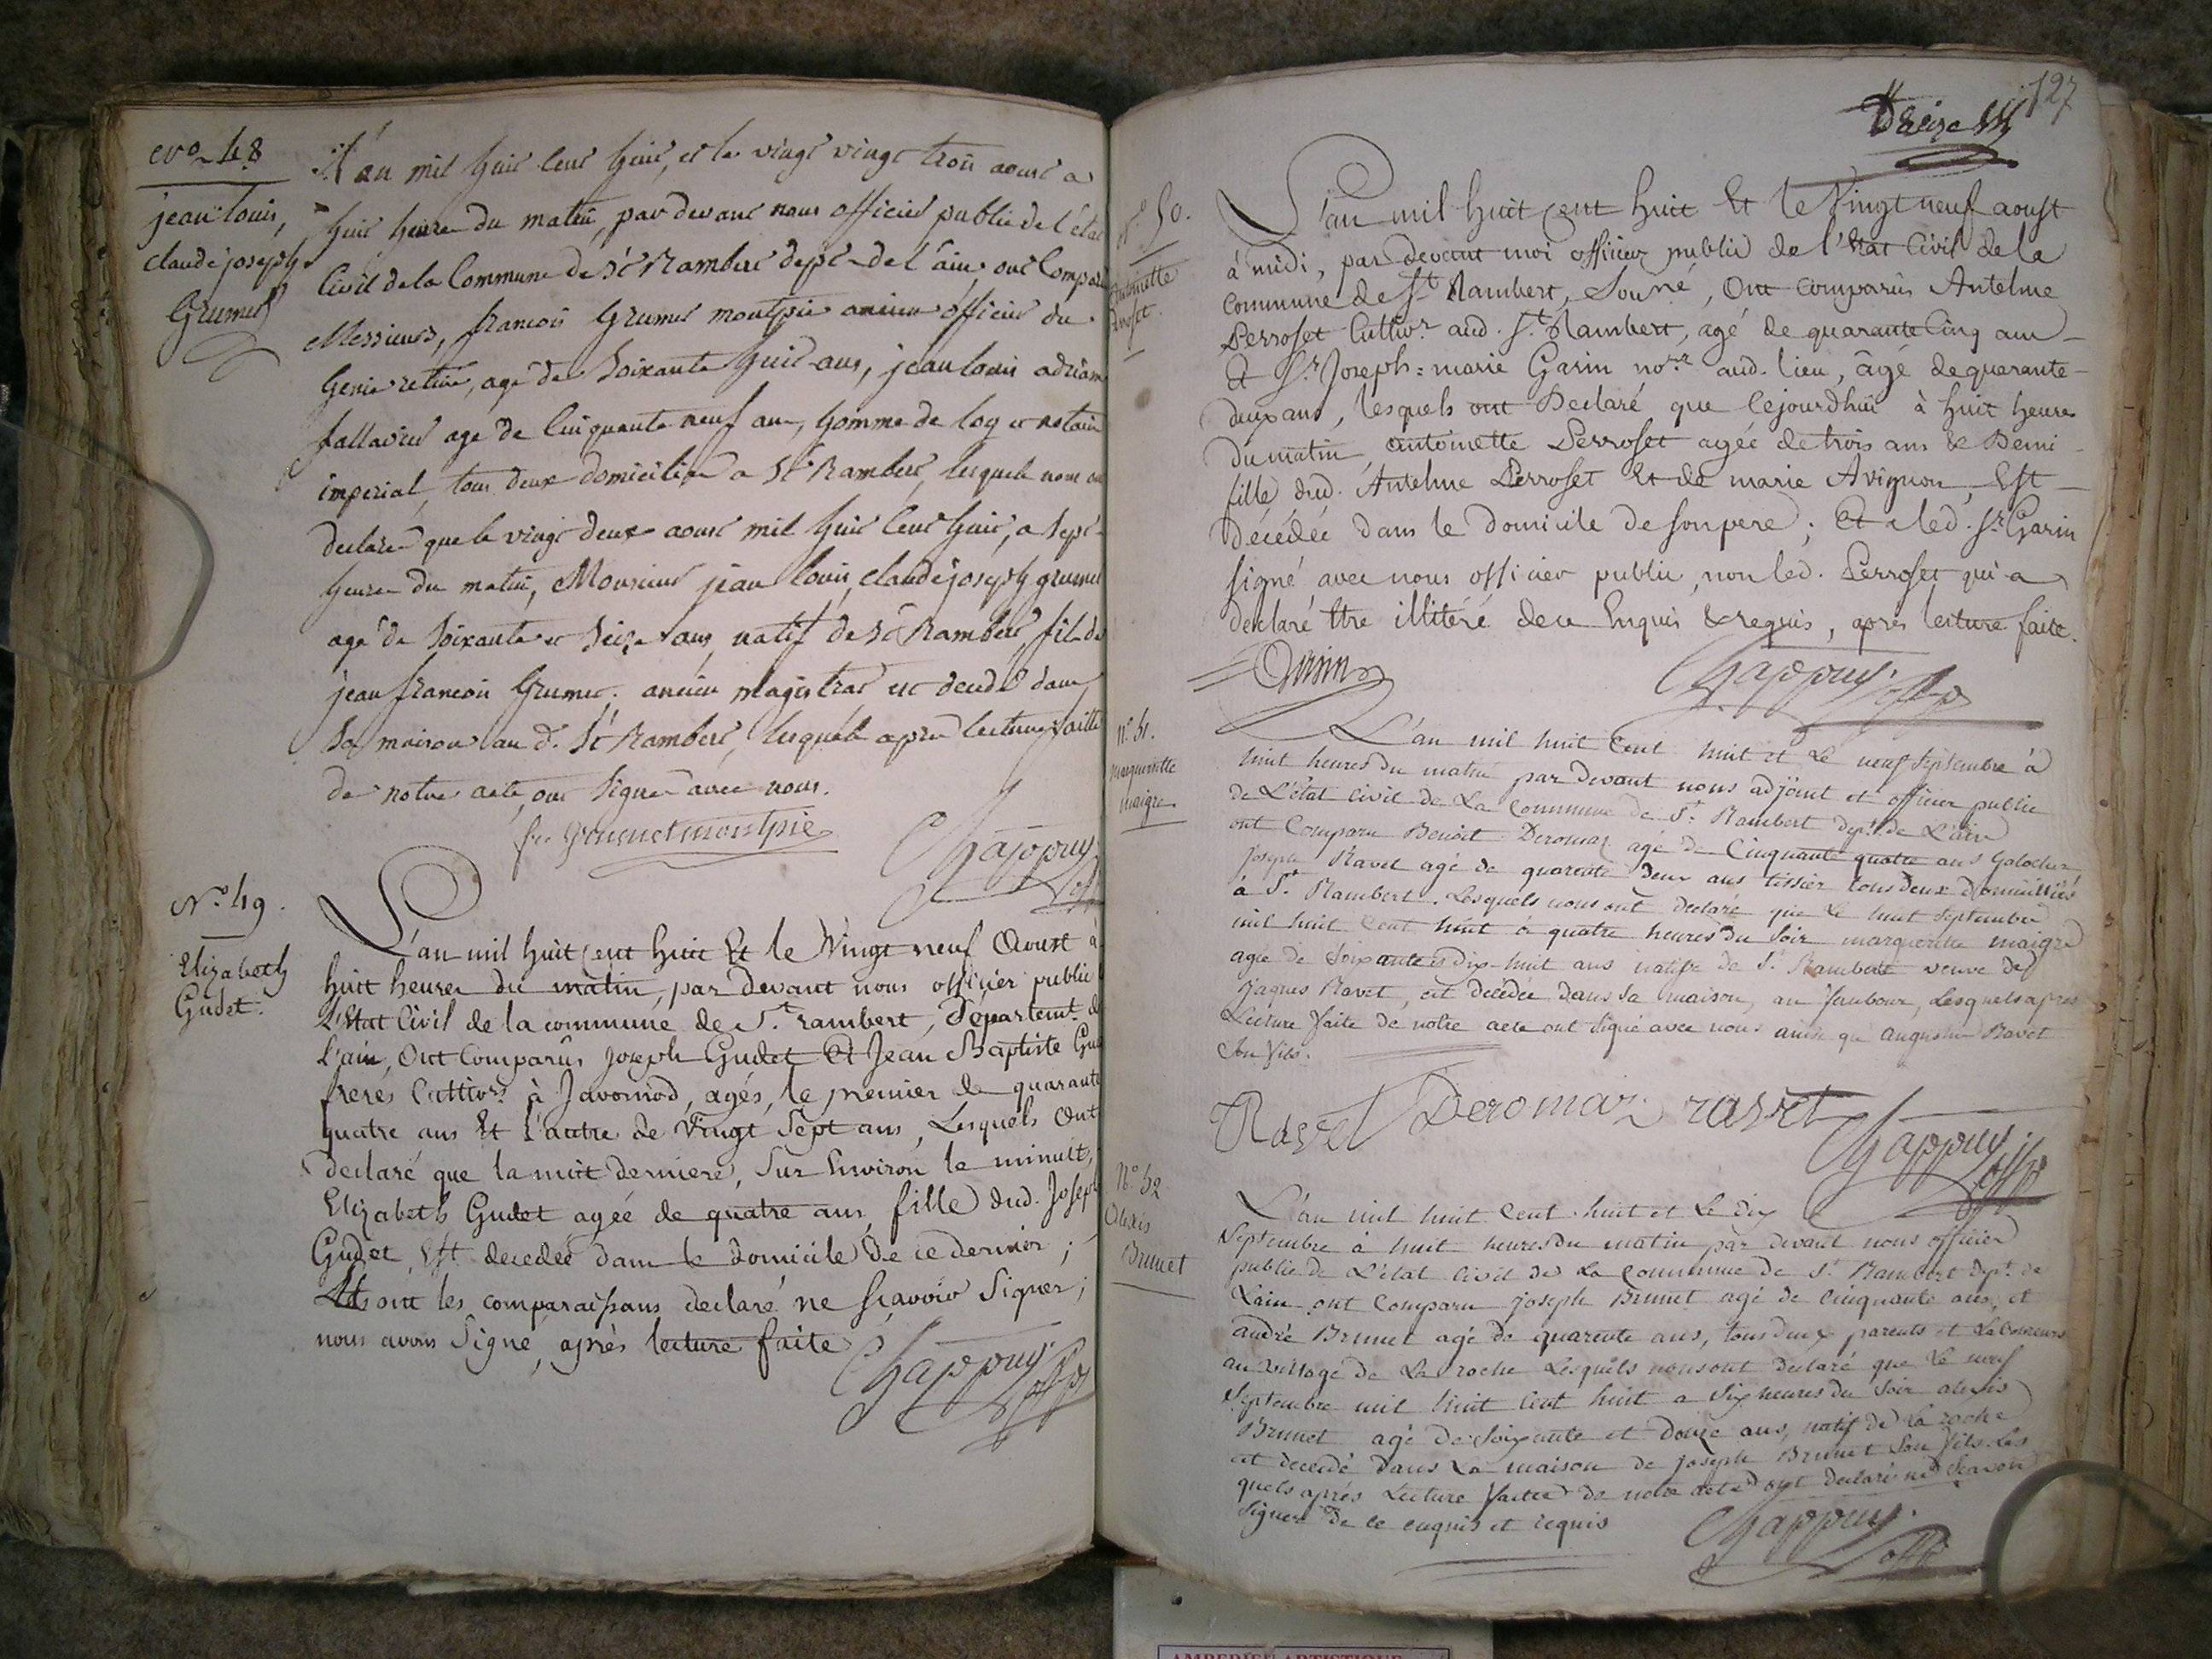 No 48
jean louis,
claude joseph
Grumet
L'an mil huit cent huit, et le vingt vingt trois aout a
huit heure du matin, par devant nous officier public de l'état
Civil de la Commune de St Rambert dept de l'ain, ont Comparu
Messieurs, francois Grumet montpie ancien officier du
Genie retiré, agé de Soixante huit ans, jean louis adrian
fallavier agé de Cinquante neuf ans, homme de loy et notaire
imperial, tous deux domicilies a St Rambert, lesquels nous ont
declaré que le vingt deux aout mil huit cent huit, a Sept
heure du matin, Monsieur jean louis, claude joseph grumet
agé de Soixante et Seize ans, natif de St Rambert, fils de
jean francois Grumet, ancien magistrat est decedé dans
Sa maison au d. St Rambert, lesquels apres lecture faitte
de notre acte, ont Signer avec nous.
fr. Grumet montpié
Chappuy
No 49.
Elizabeth
Gudet.
L'an mil huit cent huit Et le Vingt neuf Aoust à
huit heures du matin, par devant nous officier public
L'Etat Civil de la commune de St. rambert, Département. de
L'ain, Ont Comparûs Joseph Gudet Et Jean Baptiste Gu
freres Cultivrs à Javornod, agés, le premier de quarante
quatre ans Et l'autre de Vingt Sept ans, Lesquels Ont
declaré que la nuit derniere, Sur Environ le minuit,
Elizabeth Gudet agée de quatre ans, fille dud. Joseph
Gudet, Est decedée dans le domicile de ce dernier;
Et ont les comparaissans declaré ne scavoir Signer;
nous avons Signé, après lecture faite
Chappuy offp
127
Treize
No 50.
Antoinette
Perroset.
L'an mil huit cent huit Et le Vingt neuf aoust
à midi, par devant moi officier public de l'Etat Civil de la
commune de St Rambert, Souné, Ont comparûs Antelme
Perroset Cultivr aud. St. Rambert, âgé de quarante Cinq ans
Et Sr. Joseph=marie Garin nore aud. lieu, âgé de quarante
deux ans, lesquels ont Declaré que Cejourdhui à huit heures
du matin, antoinette Perroset agée de trois ans & Demi
fille dud. Antelme Perroset Et de marie Avignon, Est
décédée dans le Domicile de son pere; Et a led. Sr. Garin
signé avec nous officier public, non led. Perroset qui a
declaré Etre illitéré de ce Enquis & requis, après lecture faite.
Garin
Chappuy offp
No 51.
marguerite
maigre
L'an mil huit Cent huit et Le neuf Septembre à
huit heures du matin par devant nous adjoint et officier public
de L'état Civil de La Commune de St. Rambert dept. de L'ain
ont Comparu Benoit Deromaz agé de Cinquante quatre ans Galocher
Joseph Ravet agé de quarente Deux ans tissier tous deux domiciliés
à St. Rambert. Lesquels nous ont declaré que Le huit Septembre
mil huit Cent huit à quatre heures du Soir marguerite maigre
agée de Soixante et Dix-huit ans native de St. Rambert veuve de
Jaques Ravet, est décédée Dans Sa maison, au faubour, Lesquels apres
Lecture faite de notre acte ont Signé avec nous ainsi qu'augustin Ravet
Son fils.
Ravet Deromaz ravet
Chappuy offp
No 52
Alexis
Brunet
L'an mil huit Cent huit et Le dix
Septembre à huit heures du matin par devant nous officier
public de L'état Civil de La Commune de St. Rambert dept. de
L'ain ont Comparu Joseph Brunet agé de Cinquante ans, et
andré Brunet agé de quarente ans, tous deux parents et Laboureurs
au village de La roche Lesquels nous ont declaré que Le neuf
Septembre mil huit Cent huit a Six heures du Soir alexis
Brunet agé de Soixante et Douze ans, natif de La roche
est decedé Dans La maison de joseph Brunet Son fils. Les
quels après Lecture faite de notre acte ont declaré ne Scavoir
Signer de ce enquis et requis
Chappuy offp
AMBERIEU ARTISTIQUE